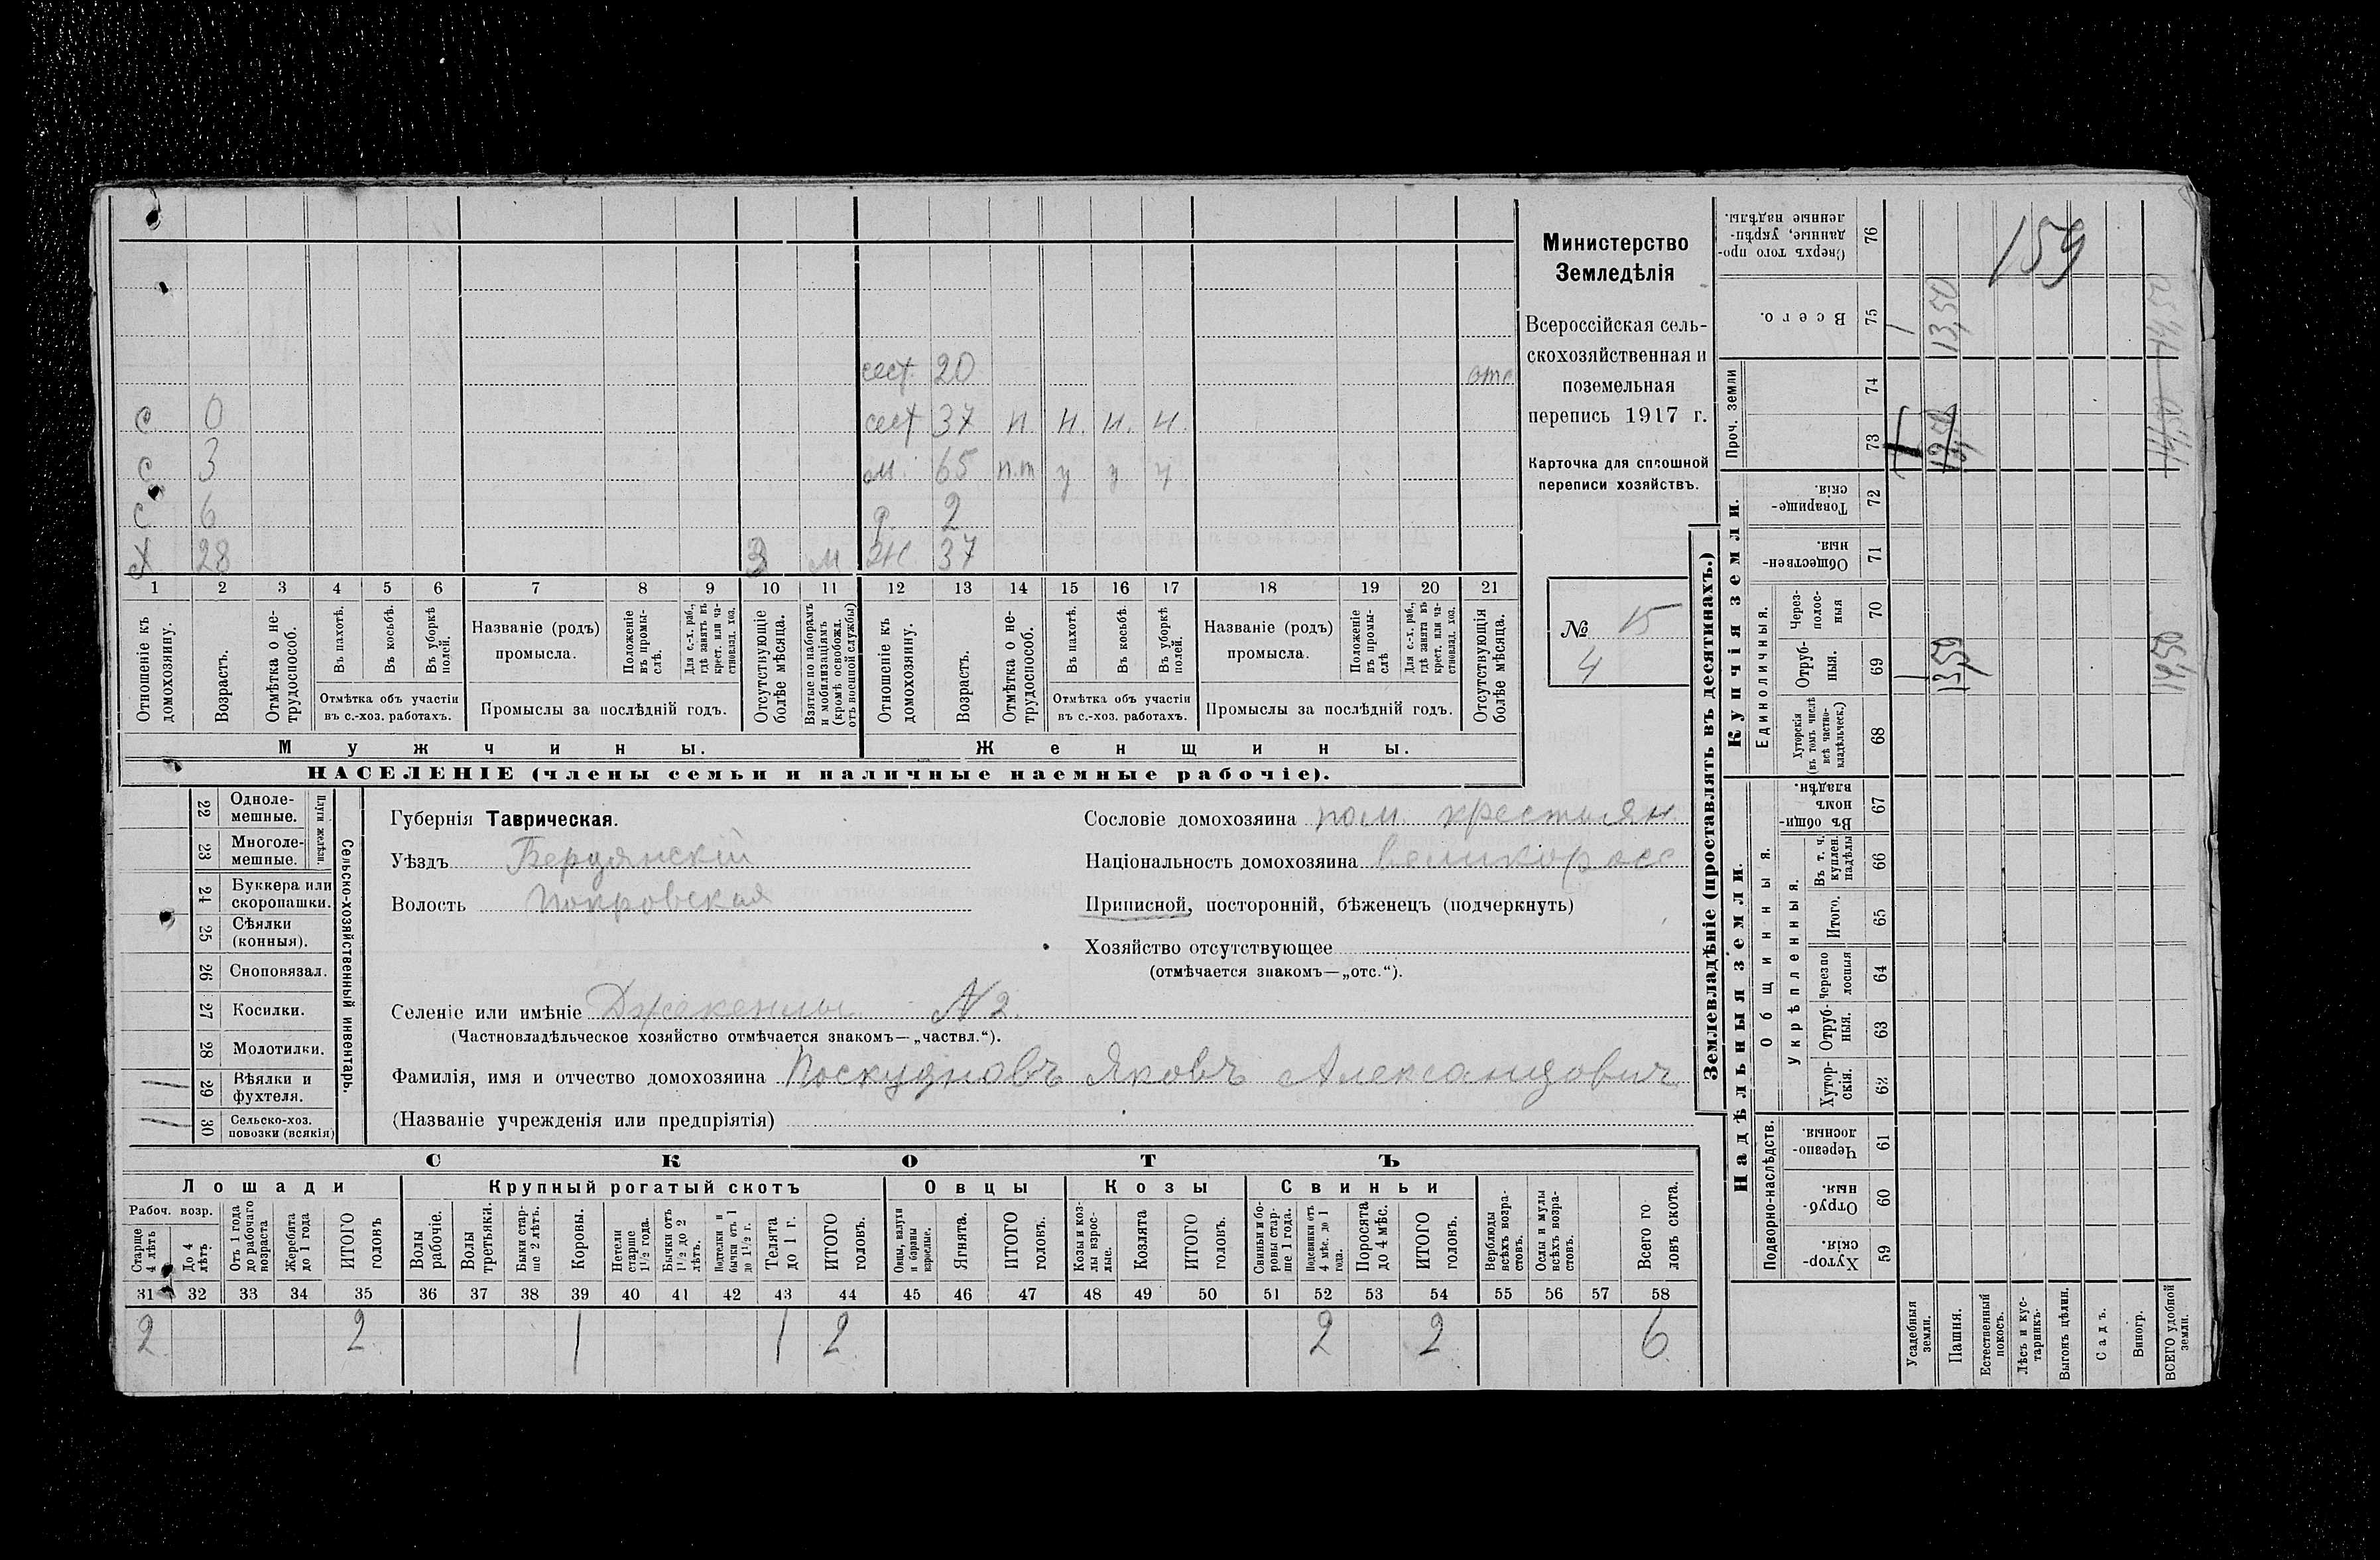 159
Министерство
Земледѣлія
Всероссійская сель-
скохозяйственная и
поземельная
перепись 1917 г.
Карточка для сплошной
переписи хозяйствъ.
№ 15
4
сест. 20 отс
с 0 сест 37 н н. н. н.
с 3 м. 65 п.т у у у
с 6 д. 2
х 28 3 м ж 37
1 2 3 4 5 6 7 8 9 10 11 12 13 14 15 16 17 18 19 20 21
Отношеніе къ домохозяину.
Возрастъ.
Отмѣтка о не-трудоспособ.
Въ пахотѣ.
Въ косьбѣ.
Въ уборкѣ полей.
Отмѣтка объ участіи
въ с.-хоз. работахъ.
Названіе (родъ)
промысла.
Положеніе въ промы-слѣ.
Для с.-х. раб., гдѣ занятъ въ крест. или ча-стновлад. хоз.
Промыслы за послѣдній годъ.
Отсутствующіе болѣе мѣсяца.
Взятые по наборамъ и мобилизаціямъ (кромѣ освобожд. отъ военной службы)
Отношеніе къ домохозяину.
Возрастъ.
Отмѣтка о не-трудоспособ.
Въ пахотѣ.
Въ косьбѣ.
Въ уборкѣ полей.
Отмѣтка объ участіи
въ с.-хоз. работахъ.
Названіе (родъ)
промысла.
Положеніе въ промы-слѣ
Для с.-х. раб., гдѣ занята въ крест. или ча-стновлад. хоз.
Промыслы за послѣдній годъ.
Отсутствующія болѣе мѣсяца.
Мужчины.
Женщины.
НАСЕЛЕНІЕ (члены семьи и наличные наемные рабочіе).
Сельско-хозяйственный инвентарь.
Плуги желѣзн.
22 Одноле-мешные.
23 Многоле-мешные.
24 Буккера или скоропашки.
25 Сѣялки (конныя).
26 Сноповязал.
27 Косилки.
28 Молотилки.
1 29 Вѣялки и фухтеля.
1 30 Сельско-хоз. повозки (всякія)
Губернія Таврическая.
Уѣздъ Бердянскій
Волость Покровская
Сословіе домохозяина пом. крестьян
Національность домохозяина великоросс
Приписной, посторонній, бѣженецъ (подчеркнуть)
Хозяйство отсутствующее
(отмѣчается знакомъ—„отс.“).
Селеніе или имѣніе Джекенлы. N 2.
(Частновладѣльческое хозяйство отмѣчается знакомъ—„частвл.“).
Фамилія, имя и отчество домохозяина Поскудновъ Яковъ Александович
(Названіе учрежденія или предпріятія)
СКОТЪ
Лошади
Крупный рогатый скотъ
Овцы
Козы
Свиньи
Рабоч. возр.
Старше 4 лѣтъ
До 4 лѣтъ
Отъ 1 года до рабочаго возраста
Жеребята до 1 года
ИТОГО головъ
Волы рабочіе.
Волы третьяки.
Быки стар-ше 2 лѣтъ.
Коровы.
Нетели старше 1½ года.
Бычки отъ 1½ до 2 лѣтъ.
Подтелки и бычки отъ 1 до 1½ г.
Телята до 1 г.
ИТОГО головъ.
Овцы, валухи и бараны взрослые.
Ягнята.
ИТОГО головъ.
Козы и коз-лы взрос-лые.
Козлята
ИТОГО головъ.
Свиньи и бо-ровы стар-ше 1 года.
Подсвинки отъ 4 мѣс. до 1 года.
Поросята до 4 мѣс.
ИТОГО головъ.
Верблюды всѣхъ возра-стовъ.
Ослы и мулы всѣхъ возра-стовъ.
Всего го-ловъ скота.
31 32 33 34 35 36 37 38 39 40 41 42 43 44 45 46 47 48 49 50 51 52 53 54 55 56 57 58
2 2 1 1 2 2 2 6
Землевладѣніе (проставлять въ десятинахъ.)
Надѣльныя земли.
Купчія земли.
Проч. земли
Подворно-наслѣдств.
Общинныя.
Укрѣпленныя.
Единоличныя.
Хутор-скія. 59
Отруб-ныя. 60
Черезпо-лосныя. 61
Хутор-скія. 62
Отруб-ныя. 63
Черезпо-лосныя 64
Итого. 65
Въ т. ч. куплен. надѣлы 66
Въ общи-номъ владѣн. 67
Хуторскія (въ томъ числѣ всѣ частно-владѣльческ.) 68
Отруб-ныя. 69
Через-полос-ныя 70
Обществен-ныя. 71
Товарище-скія. 72
73
74
Всего. 75
Сверхъ того про-данные, укрѣп-ленные надѣлы. 76
Усадебныя земли.
Пашня.
Естественный покосъ.
Лѣсъ и кус-тарникъ.
Выгонъ цѣлин.
Садъ.
Виногр.
ВСЕГО удобной земли.
1 13,50
1 1350
1450